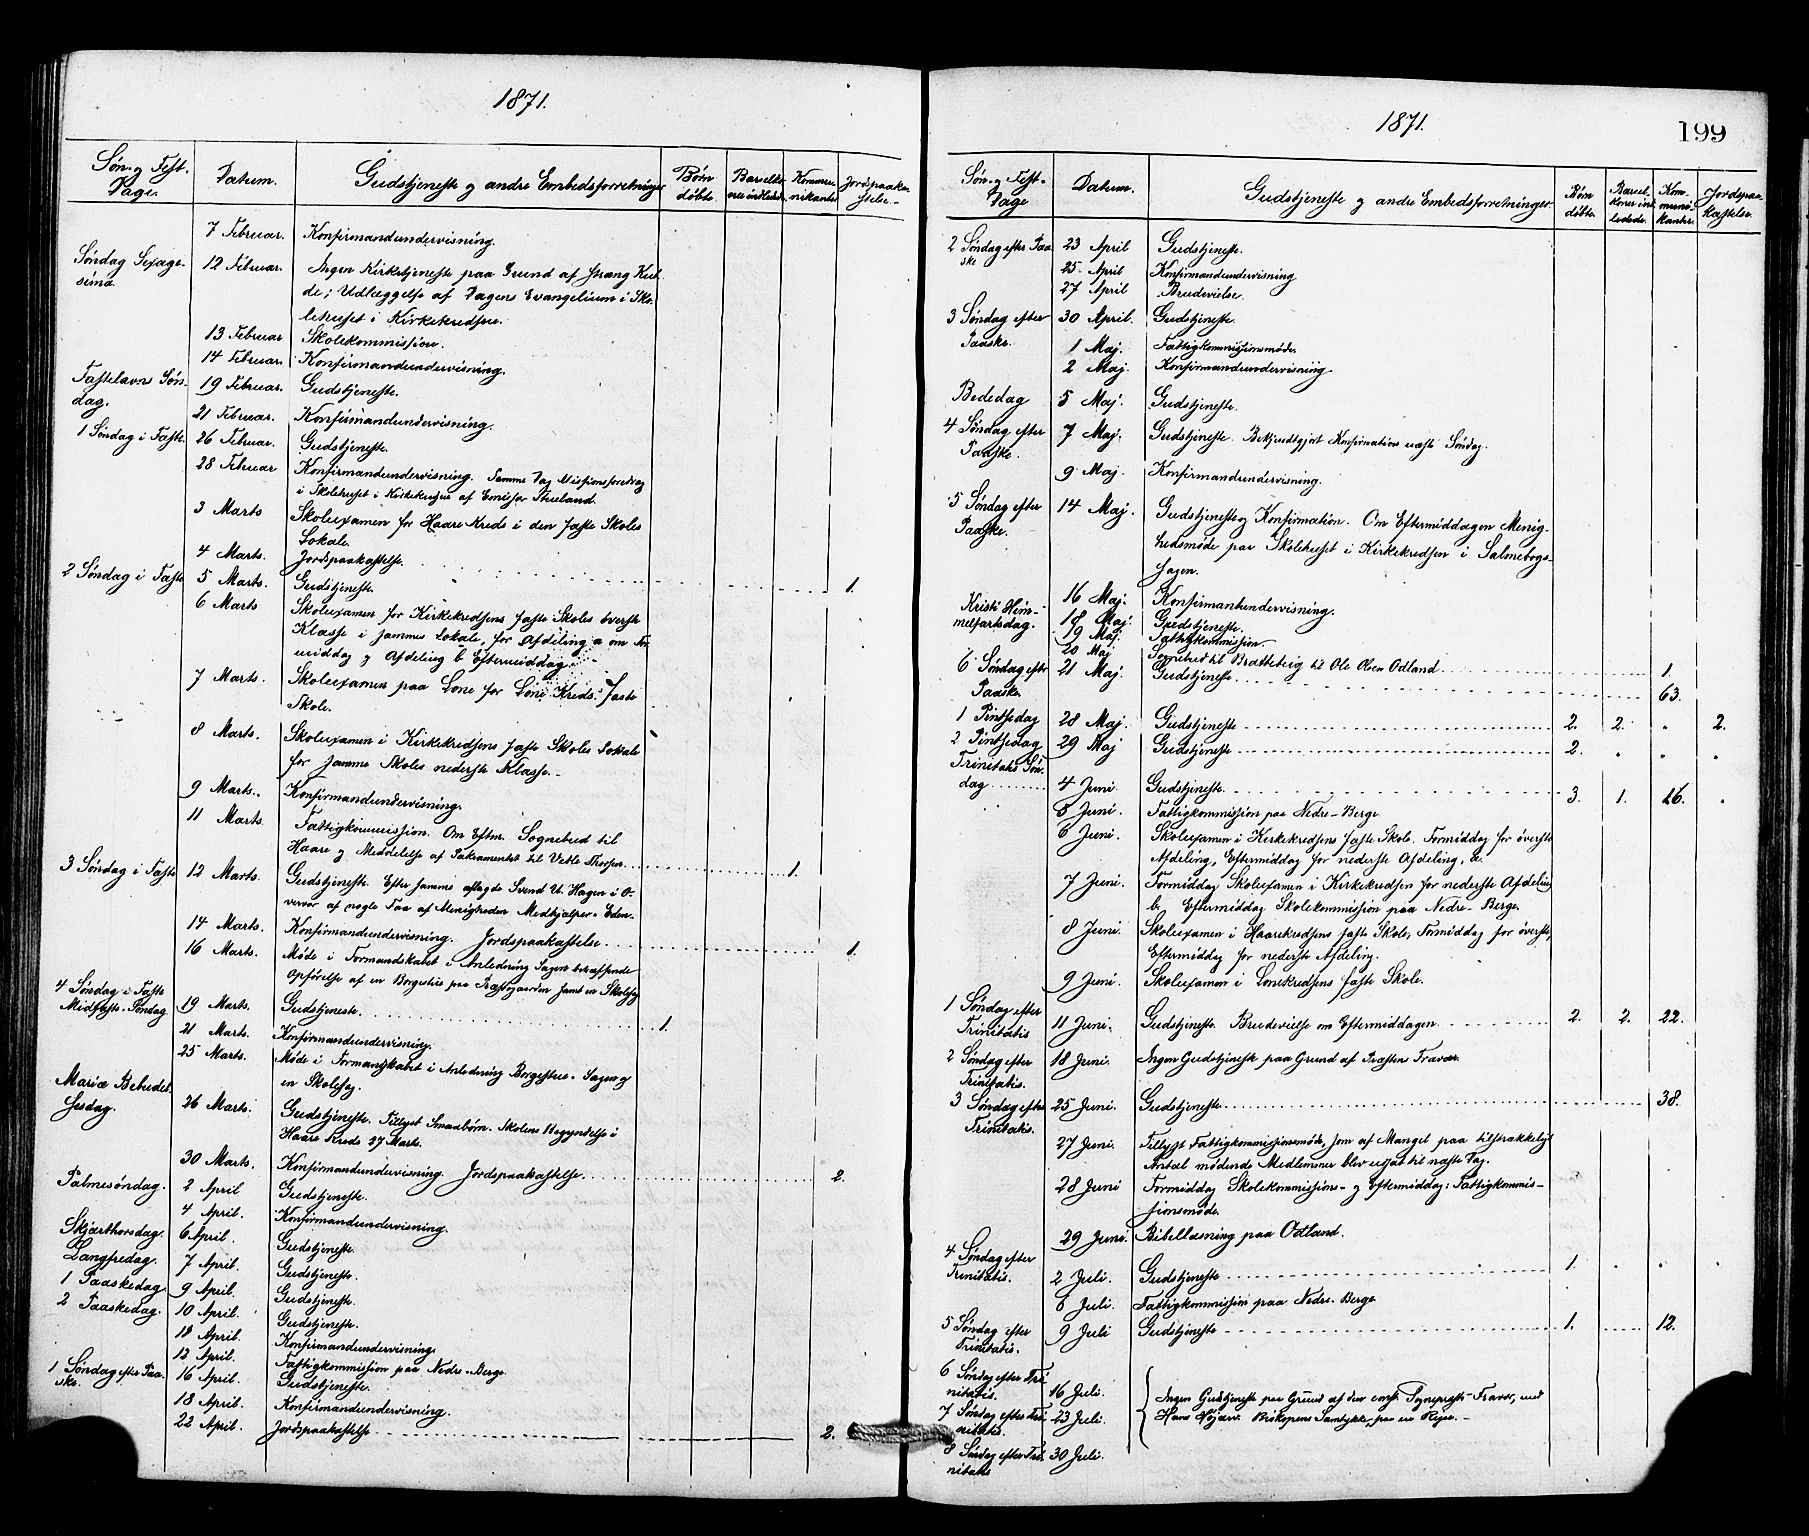 1871.
Søn- og Fest-
Dage.
Datum.
Gudstjeneste og andre Embedsforretninger
Børn
døbte
Kommu-
nikanter
Jordspaaka-
stelse.
7 Februar. Konfirmandundervisning.
Søndag Sexage- 12 Februar. Ingen Kirketjeneste paa Grund af strang Kul-
sima. de; Udlæggelse af Dagens Evangelium i Sko-
lehuset i Kirkekredsen.
13 Februar Skolekommission.
14 Februar. Konfirmandundervisning.
Fastelavns Søn- 19 Februar. Gudstjeneste.
dag.
21 Februar. Konfirmandundervisning.
1 Søndag i Faste. 26 Februar. Gudstjeneste.
28 Februar Konfirmandundervisning. Samme Dag Missionsforedrag
i Skolehuset i Kirkekredsen af Emissær
3 Marts Skoleexamen for Haare Kreds i den faste Skoles
Lokale.
4 Marts. Jordspaakastelse. 1.
2 Søndag i Faste 5 Marts. Gudstjeneste.
6 Marts Skoleexamen for Kirkekredsens faste Skoles øverste
Klasse i samme Lokale, for Afdeling a om For-
middag og Afdeling b Eftermiddag.
7 Marts. Skoleexamen paa Lone for Lone Kreds. faste
Skole.
8 Marts. Skoleexamen i Kirkekredsens faste Skoles Lokale
for samme Skoles nederste Klasse.
9 Marts. Konfirmandundervisning.
11 Marts. Fattigkommission. Om Eftm. Sognebud til
Haare og Meddelelse af Sakramentet til 1.
3 Søndag i Faste 12 Marts. Gudstjeneste. Efter samme aflagde Svend U. Hagen i O-
vervær af nogle Faa af Menigheden Medhjælper-Eden.
14 Marts. Konfirmandundervisning. Jordspaakastelse 1.
16 Marts. Møde i Formandskabet i Anledning Sagen betræffende
Opførelse af en Borgestue paa Præstgaarden samt en Skolesag
4 Søndag i Faste
Midfaste-Søndag 19 Marts. Gudstjeneste. 1.
21 Marts. Konfirmandundervisning.
25 Marts. Møde i Formandskabet i Anledning Borgestue-Sagen og
en Skolesag.
Mariæ Bebudel-
sesdag. 26 Marts. Gudstjeneste. Tillyst Smaabørn-Skolens Begyndelse i
Haare Kreds 27 Marts.
30 Marts. Konfirmandundervisning. Jordspaakastelse 2.
Palmesøndag. 2 April Gudstjeneste.
4 April. Konfirmandundervisning.
Skjærthorsdag. 6 April. Gudstjeneste.
Langfredag. 7 April. Gudstjeneste.
1 Paaskedag 9 April. Gudstjeneste.
2 Paaskedag. 10 April. Gudstjeneste.
April. Konfirmandundervisning.
12 April. Fattigkommission paa Nedre-Berge
1 Søndag efter Paa- 16 April. Gudstjeneste.
ske.
18 April. Konfirmandundervisning.
22 April. Jordspaakastelse 2.
1871. 199
Søn- og Fest-
Dage
Datum.
Gudstjeneste og andre Embedsforretninger
Børn
døbte
Barsel-
koner ind-
ledede
Kom-
muni-
kanter
Jordspaa-
kastelse.
2 Søndag efter Paa- 23 April Gudstjeneste.
ske
25 April Konfirmandundervisning
27 April Brudevielse.
3 Søndag efter 30 April. Gudstjeneste.
Paaske.
1 Maj. Fattigkommissionsmøde.
2 Maj. Konfirmandundervisning
Bededag 5 Maj. Gudstjeneste.
4 Søndag efter 7 Maj. Gudstjeneste. Bekjendtgjort Konfirmation næste Søndag.
Paaske.
9 Maj. Konfirmandundervisning.
5 Søndag efter 14 Maj. Gudstjeneste og Konfirmation. Om Eftermiddagen Menig-
Paaske. hedsmøde paa Skolehuset i Kirkekredsen i Salmebogs-
sagen.
16 Maj. Konfirmandundervisning.
Kristi Him- 18 Maj. Gudstjeneste.
melfartsdag. 19 Maj Fattigkommission.
20 Maj Sognebud til Bratteteig til Ole Olsen Odland 1.
6 Søndag efter 21 Maj. Gudstjeneste. 63.
Paaske.
1 Pintsedag 28 Maj. Gudstjeneste 2. 2. " 2.
2 Pintsedag 29 Maj Gudstjeneste 2. " " "
Trinitatis Søn-
dag 4 Juni. Gudstjeneste. 3. 1. 16. "
5 Juni. Fattigkommission paa Nedre-Berge
6 Juni. Skoleexamen i Kirkekredsens faste Skole. Formiddag for øverste
Afdeling, Eftermiddag for nederste Afdeling, a.
7 Juni. Formiddag Skoleexamen i Kirkekredsen for nederste Afdeling
b. Eftermiddag Skolekommission paa Nedre-Berge.
8 Juni. Skoleexamen i Haarekredsens faste Skole, Formiddag for øverste,
Eftermiddag for nederste Afdeling.
9 Juni. Skoleexamen i Lonekredsens faste Skole.
1 Søndag efter 11 Juni. Gudstjeneste. Brudevielse om Eftermiddagen 2. 2. 22.
Trinitatis
2 Søndag efter 18 Juni. Ingen Gudstjeneste paa Grund af Præstens Fravær.
Trinitatis.
3 Søndag efter 25 Juni. Gudstjeneste 38.
Trinitatis.
27 Juni. Tillyst Fattigkommissionsmøde, som af Mangel paa tilstrækkeligt
Antal mødende Medlemmer blev udsat til næste Dag.
28 Juni Formiddag Skolekommissions- og Eftermiddag: Fattigkommis-
sionsmøde.
29 Juni. Bibellæsning paa Odland.
4 Søndag efter
Trinitatis. 2 Juli. Gudstjeneste 1. " " "
8 Juli. Fattigkommission paa Nedre-Berge
5 Søndag efter 9 Juli Gudstjeneste 1. 12.
Trinitatis.
6 Søndag efter Tri-
nitatis. 16 Juli. Ingen Gudstjeneste paa Grund af den const. Sognepræsts Fravær, med
7 Søndag efter Tri- 23 Juli. Hans Højærv. Biskopens Samtykke, paa en Rejse.
nitatis.
8 Søndag efter Tri- 30 Juli.
nitatis